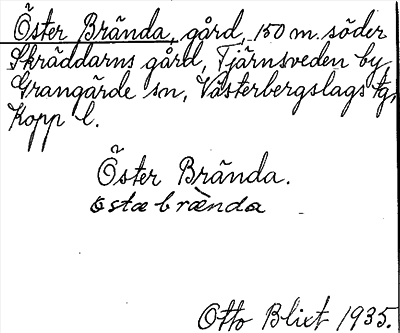 Öster Brända, gård, 150 m. söder
Skräddarns gård, Tjärnsveden by,
Grangärde sn, Västerbergslags tg,
Kopp l.
Öster Brända.
östæ brænda
Otto Blixt 1935.